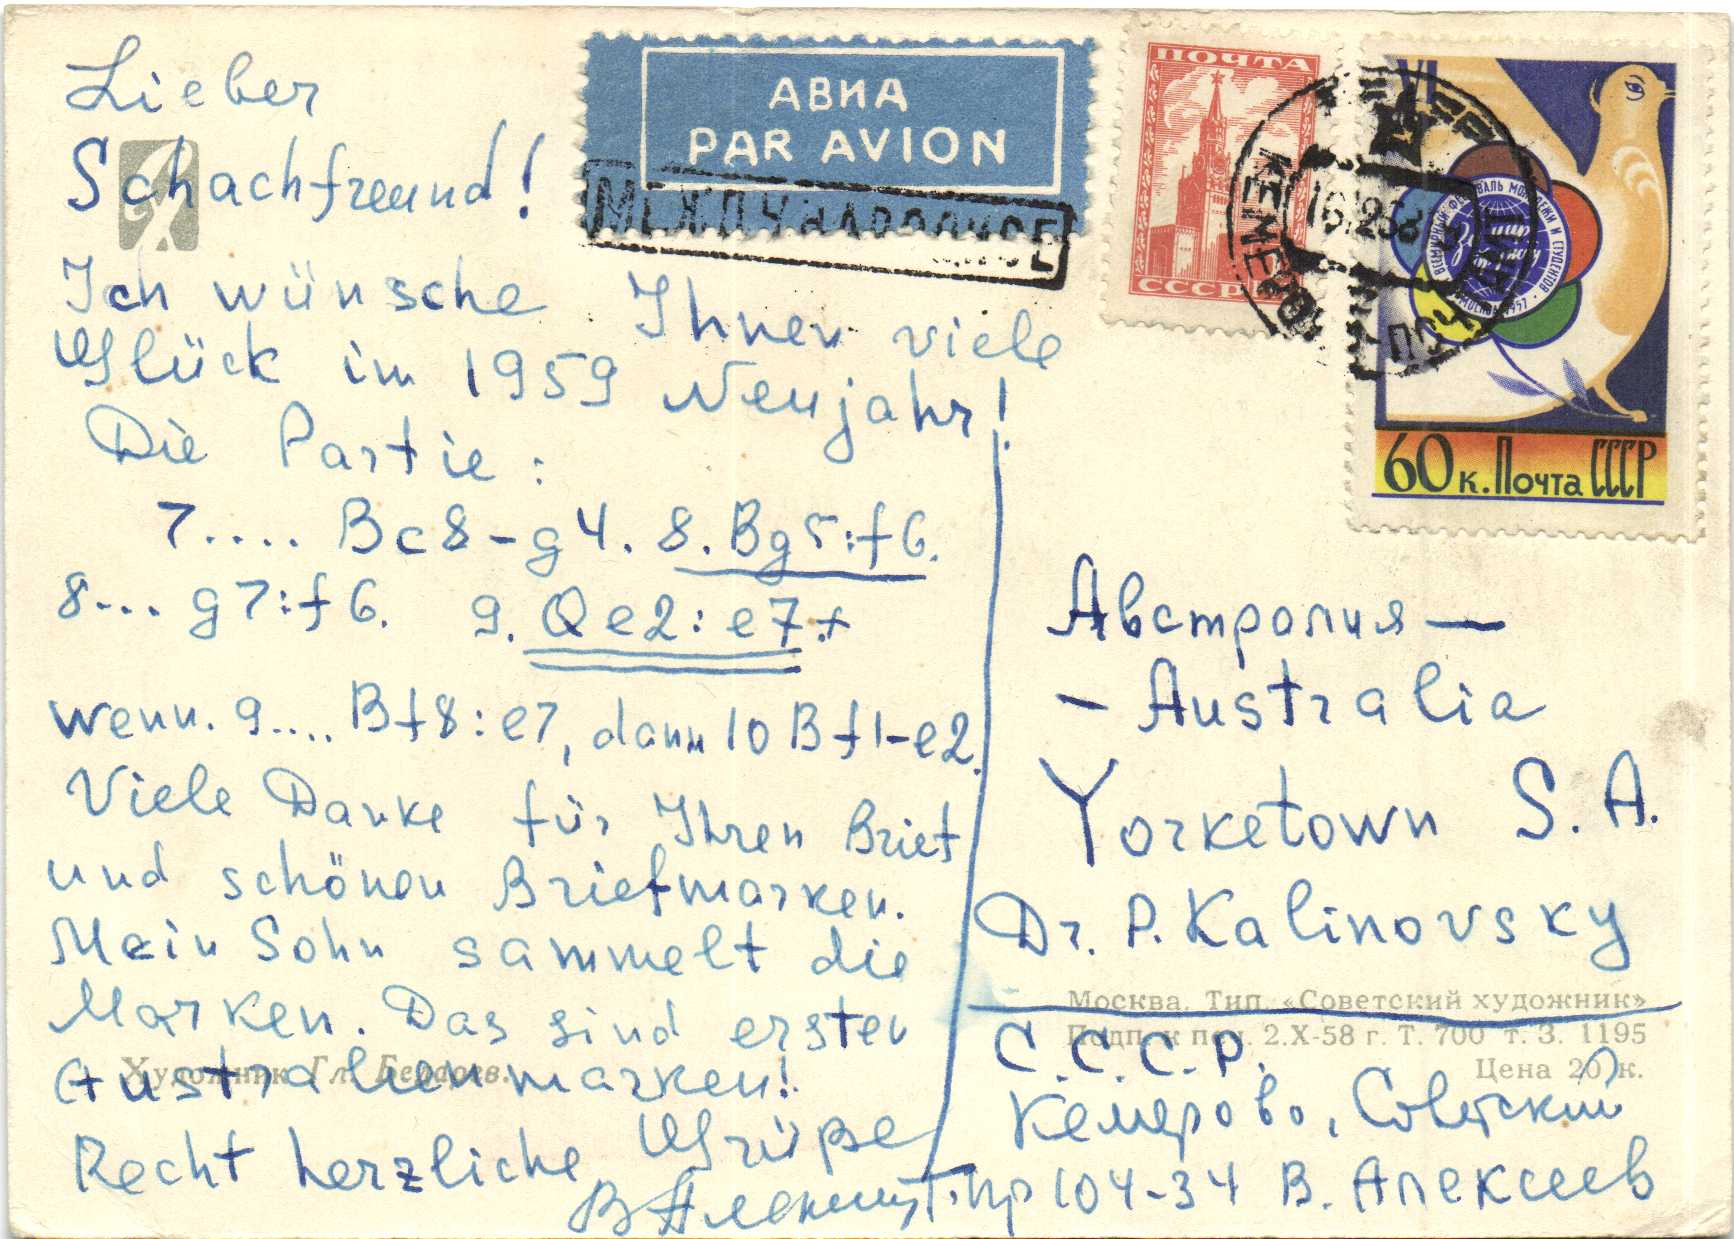 Lieber
Schachfreund!
Ich wünsche Ihnen viele
Glück im 1959 Neujahr!
Die Partie:
7.... Bc8-g4. 8. Bg5:f6.
8... g7:f6. 9. Qe2:e7+
wenn. 9.... Bf8:e7, dann 10 Bf1-e2.
Viele Danke für Ihren Brief
und schönen Briefmarken.
Mein Sohn sammelt die
Marken. Das sind ersten
Australienmarken!
Recht herzliche Grüße
АВИА
PAR AVION
МЕЖДУНАРОДНОЕ
ПОЧТА
СССР
КЕМЕРОВО
ВСЕМИРНЫЙ ФЕСТИВАЛЬ МОЛОДЕЖИ И СТУДЕНТОВ
МОСКВА 1957
60 к. Почта СССР
Австралия —
- Australia
Yorketown S. A.
Dr. P. Kalinovsky
Москва. Тип. «Советский художник»
Подп. к печ. 2.X-58 г. Т. 700 т. З. 1195
Цена 20 к.
С.С.С.Р.
Кемерово, Советский
пр 104-34 В. Алексеев
Художник Гл.